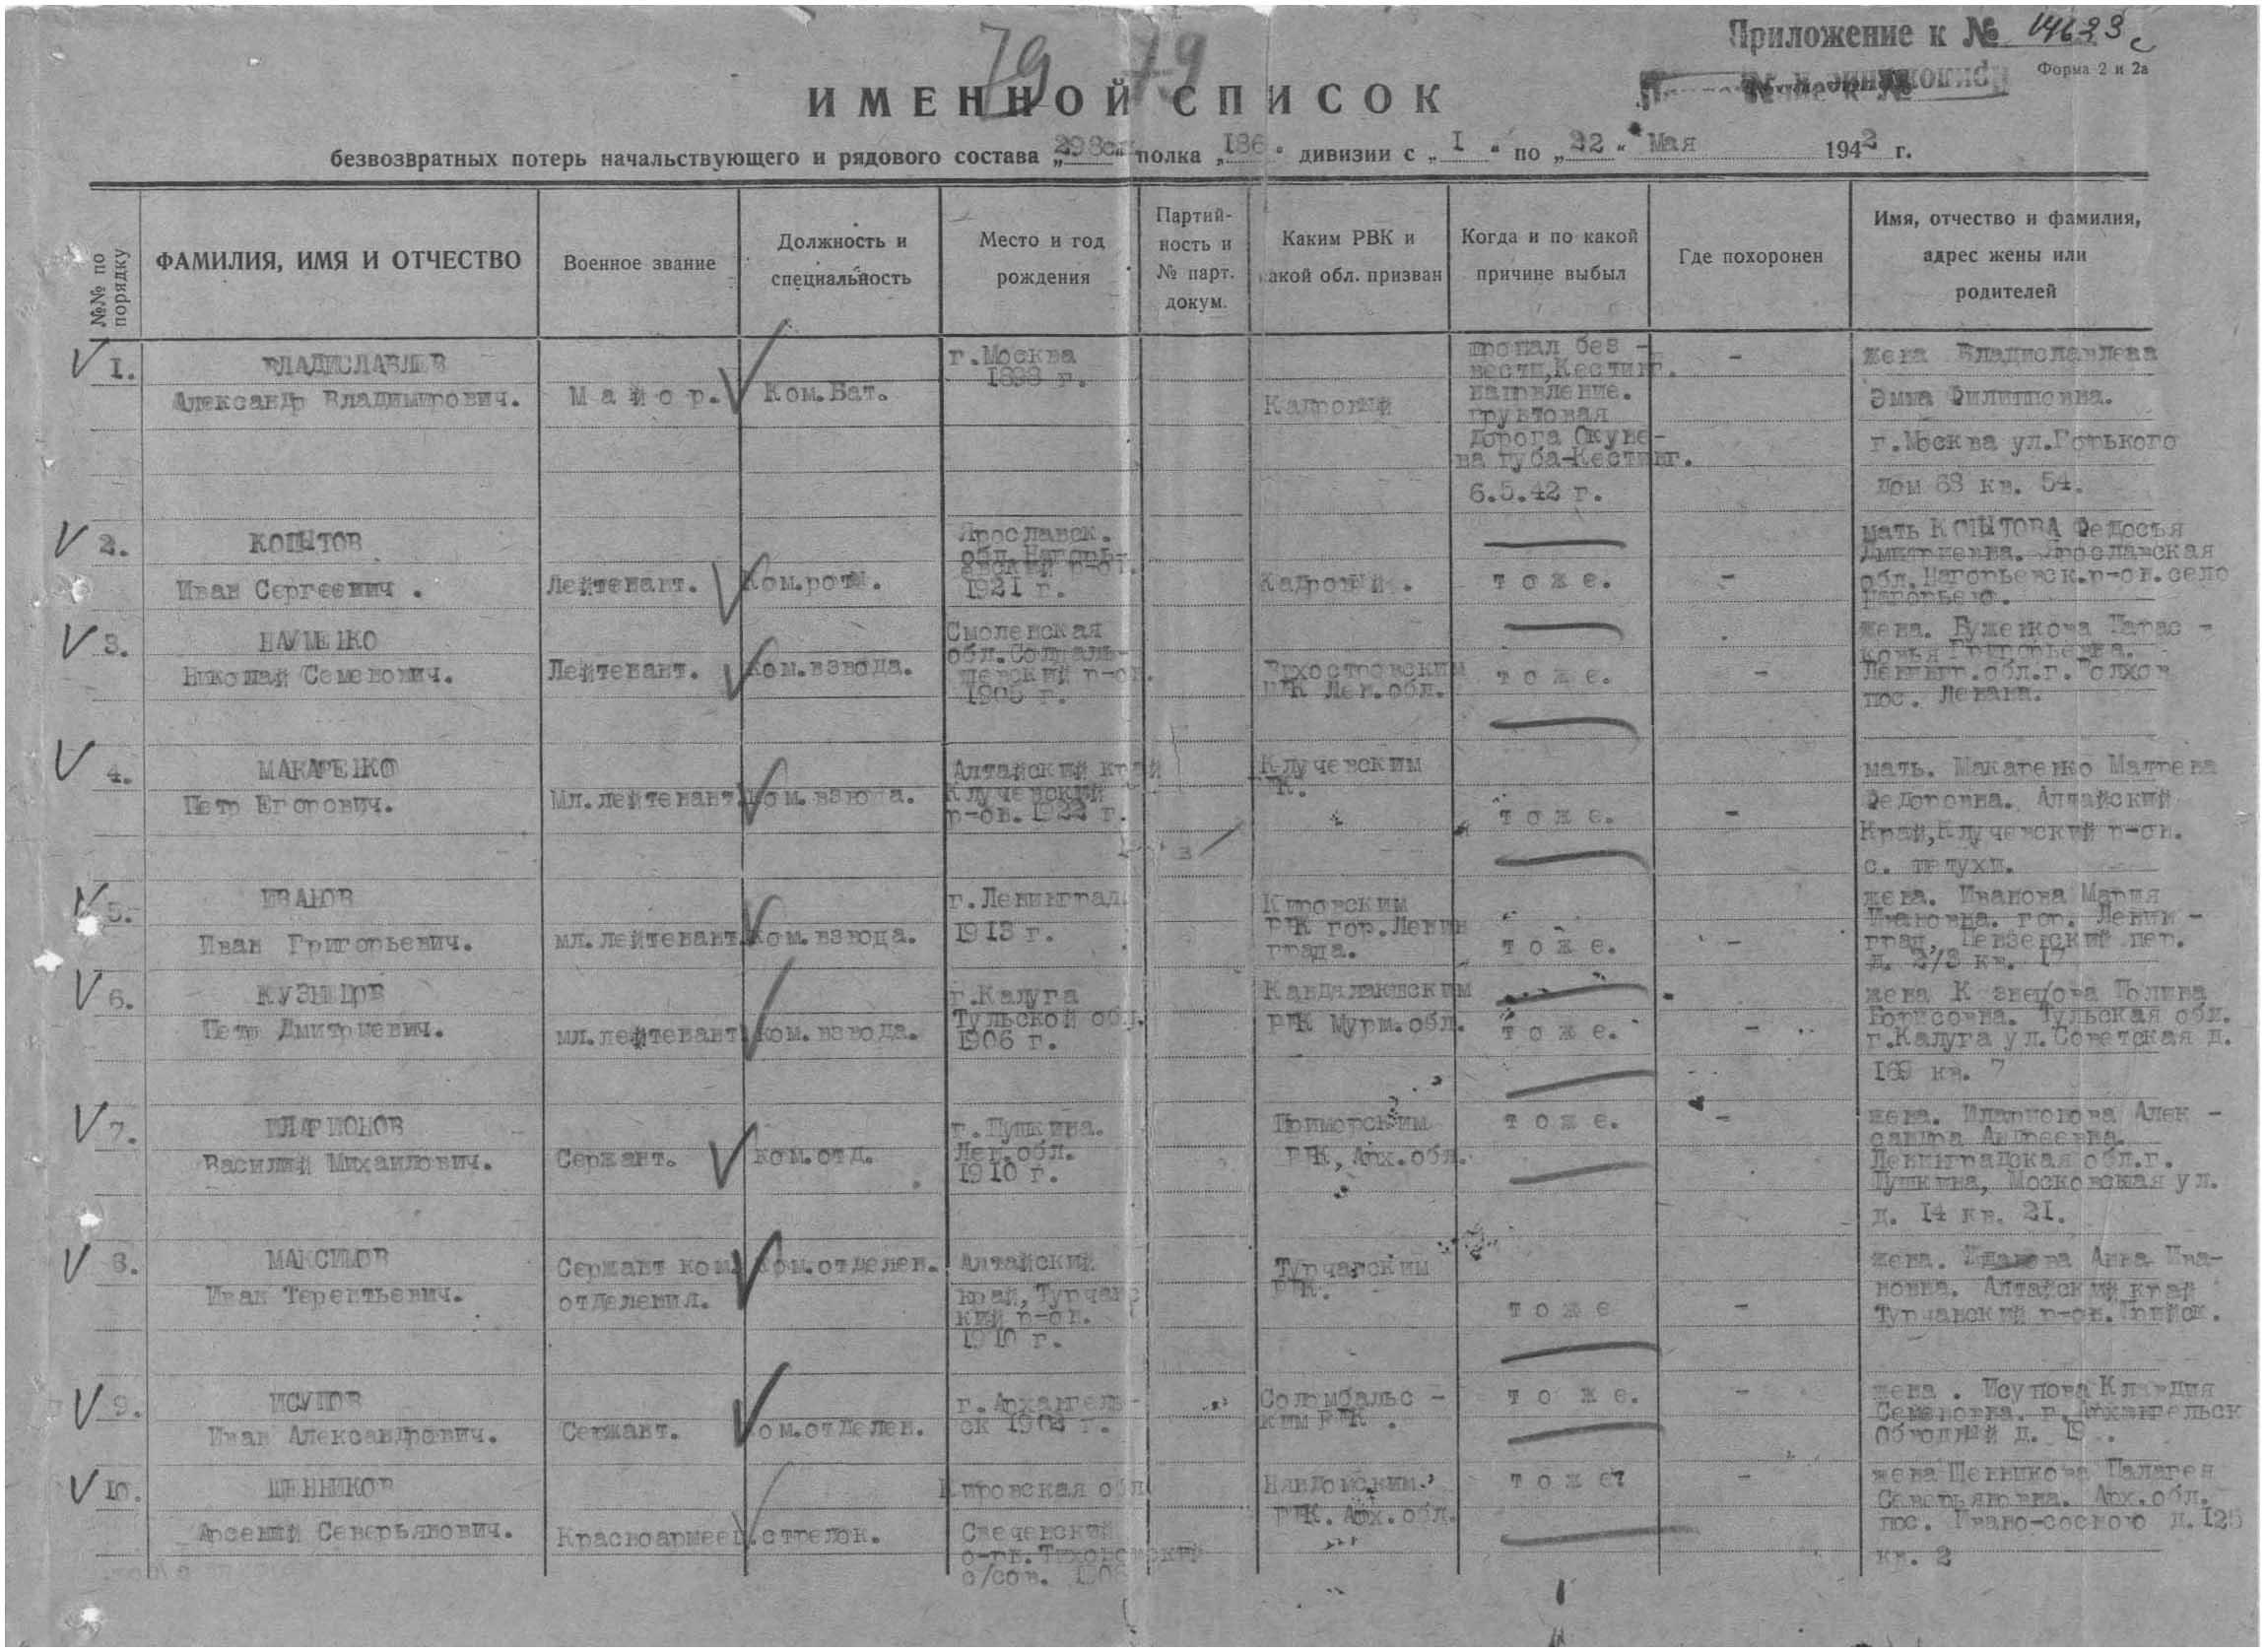 79 79
Приложение к № 14623с
Форма 2 и 2а
ИМЕННОЙ СПИСОК
безвозвратных потерь начальствующего и рядового состава „298сп“ полка „186“ дивизии с „1“ по „22“ Мая 1942 г.
№№ по порядку
ФАМИЛИЯ, ИМЯ И ОТЧЕСТВО
Военное звание
Должность и
специальность
Место и год
рождения
Партий-
ность и
№ парт.
докум.
Каким РВК и
акой обл. призван
Когда и по какой
причине выбыл
Где похоронен
Имя, отчество и фамилия,
адрес жены или
родителей
1.
ВЛАДИСЛАВЛЕВ
Александр Владимирович.
Майор.
Ком.Бат.
г.Москва
1898 г.
Кадровый
пропал без -
вести,Кестинг.
направление.
грунтовая
дорога Окуне-
ва губа-Кестинг.
6.5.42 г.
-
жена Владиславлева
Эмма Филипповна.
г.Москва ул.Горького
дом 68 кв. 54.
2.
КОПЫТОВ
Иван Сергеевич .
Лейтенант.
Ком.роты.
Ярославск.
обл.Нагорь-
евский р-он.
1921 г.
Кадровый .
тоже.
-
мать КОПЫТОВА Федосья
Дмитриевна. Ярославская
обл.Нагорьевск.р-он.село
Нагорьево.
3.
НАУМЕНКО
Николай Семенович.
Лейтенант.
Ком.взвода.
Смоленская
обл.
р-он.
1905 г.
РВК Лен.обл.
тоже.
-
жена. Буженкова Парас -
ковья Григорьевна.
Ленингр.обл.г.Волхов
пос.
4.
МАКАРЕНКО
Петр Егорович.
Мл.лейтенант.
Ком.взвода.
Алтайский край
Ключевский
р-он. 1922 г.
Ключевским
РВК.
тоже.
-
мать. Макаренко Матрена
Федоровна. Алтайский
Край,Ключевский р-он.
с. петухи.
5.
ИВАНОВ
Иван Григорьевич.
мл.лейтенант.
Ком.взвода.
г.Ленинград.
1913 г.
Кировским
РВК гор.Ленин
града.
тоже.
-
жена. Иванова Мария
Ивановна. гор. Ленин -
град, пер.
д. 2/3 кв. 17
6.
КУЗНЕЦОВ
Петр Дмитриевич.
мл.лейтенант.
ком.взвода.
г.Калуга
Тульской обл.
1906 г.
Кандалакшским
РВК Мурм.обл.
тоже.
-
жена К знецова Полина
Борисовна. Тульская обл.
г.Калуга ул.Советская д.
169 кв. 7
7.
ИЛАРИОНОВ
Василий Михаилович.
Сержант.
ком.отд.
г.Пушкина.
Лен.обл.
1910 г.
Приморским
РВК, Арх.обл.
тоже.
-
жена. Иларионова Алек -
сандра Андреевна.
Ленинградская обл.г.
Пушкина, Московская ул.
д. 14 кв. 21.
8.
МАКСИМОВ
Иван Терентьевич.
Сержант ком.
отделения.
Ком.отделен.
Алтайский
край, Турчанс
кий р-он.
1910 г.
Турчанским
РВК.
тоже
-
жена. Анна Ива-
новна. Алтайский край
Турчанский р-он.
9.
ИСУПОВ
Иван Александрович.
Сержант.
Ком.отделен.
г.Архангель-
ск 1902 г.
Соломбальс -
ким РВК .
тоже.
-
жена . Исупова Клавдия
Семеновна. г.Архангельск
Обводный д. 19 .
10.
ШЕННИКОВ
Арсений Северьянович.
Красноармеец.
стрелок.
Кировская обл
Свечевский
с/сов. 1906
Няндомским.
РВК. Арх.обл.
тоже
-
жена Шенникова Палагея
Северьяновна. Арх.обл.
пос. д.125
кв. 2